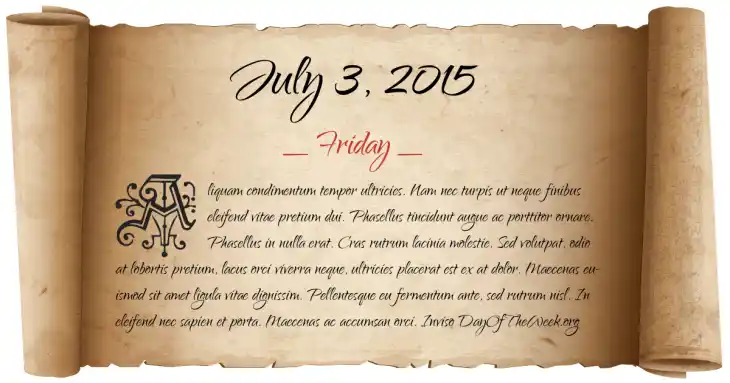 July 3, 2015
_ Friday _
Aliquam condimentum tempor ultricies. Nam nec turpis ut neque finibus
eleifend vitae pretium dui. Phasellus tincidunt augue ac porttitor ornare.
Phasellus in nulla erat. Cras rutrum lacinia molestie. Sed volutpat, odio
at lobortis pretium, lacus orci viverra neque, ultricies placerat est ex at dolor. Maecenas eu-
ismod sit amet ligula vitae dignissim. Pellentesque eu fermentum ante, sed rutrum nisl. In
eleifend nec sapien et porta. Maecenas ac accumsan orci. Inviso DayOfTheWeek.org